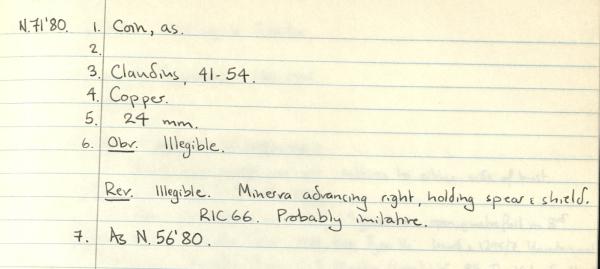 N.71'80. 1. Coin, as.
2.
3. Claudius, 41-54.
4. Copper.
5. 24 mm.
6. Obv. Illegible.
Rev. Illegible. Minerva advancing right, holding spear & shield.
RIC 66. Probably imitative.
7. As N.56'80.